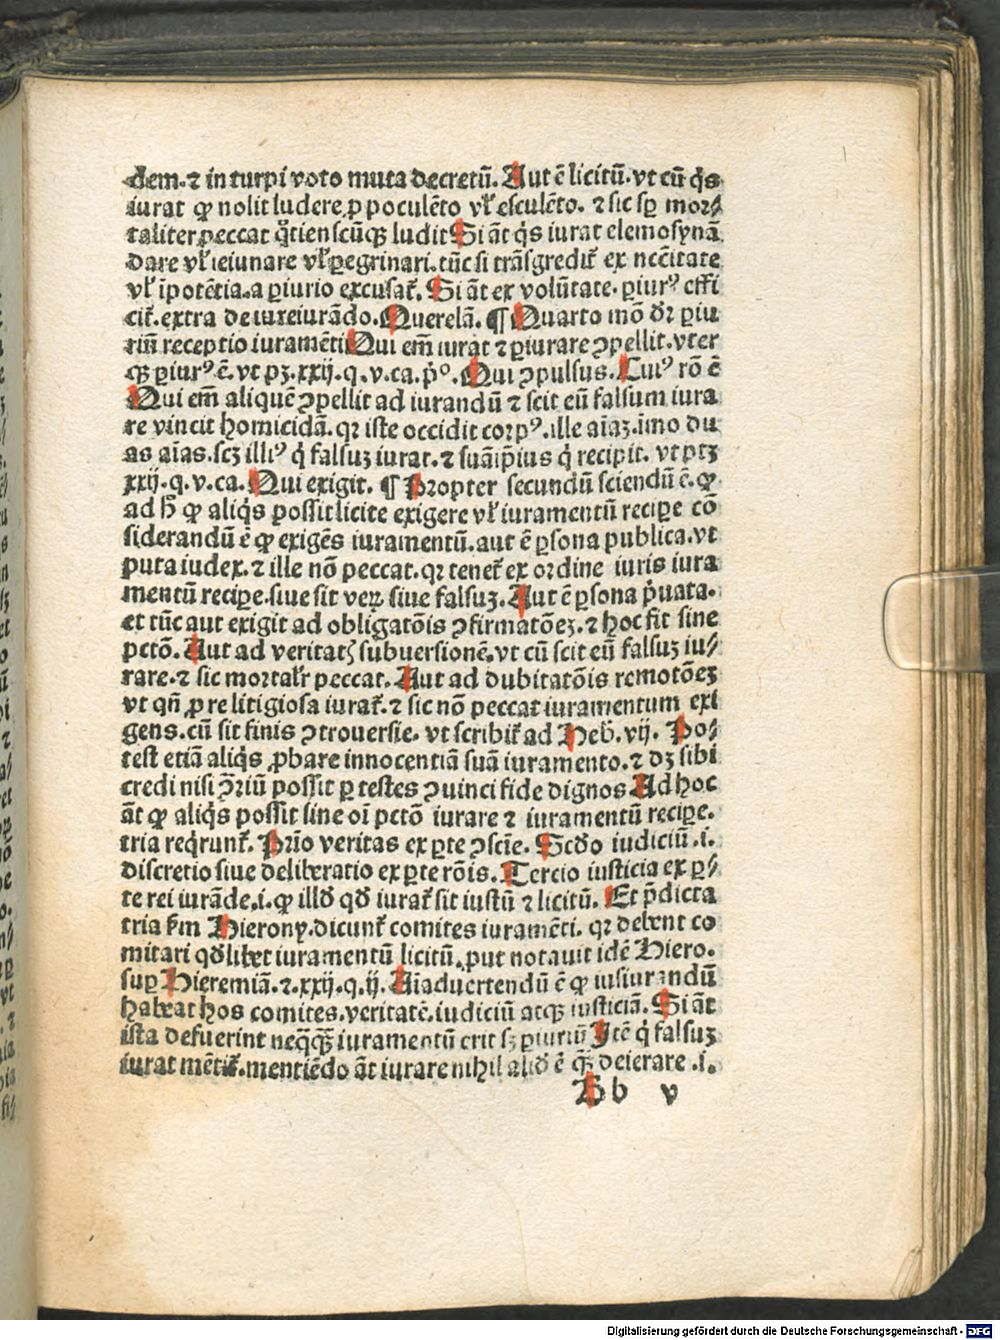 dem. ⁊ in turpi voto muta decretū. Aut ē licitū. vt cū q̇s
iurat ꝙ nolit ludere ꝓ poculēto vꝉ esculēto. ⁊ sic sꝑ mor⸗
taliter peccat q̇tienscūqꝫ ludit Si āt q̇s iurat elemosynā
dare vꝉ ieiunare vꝉ ꝑegrinari. tūc si trāsgredit᷑ ex nēcitate
vꝉ īpotētia. a ꝑiurio excusat᷑. Si āt ex volūtate. ꝑiurꝰ effi
cit᷑. extra de iureiurādo. Querelā. ¶ Quarto mō dr̄ ꝑiu
riū receptio iuramēti Qui em̄ iurat ⁊ ꝑiurare ꝯpellit. vter
qꝫ ꝑiurꝰ ē. vt pꝫ. xxij. q. v. ca. p̄º. Qui ꝯpulsus. Cuiꝰ rō ē
Qui em̄ aliquē ꝯpellit ad iurandū ⁊ scit eū falsum iura
re vincit homicidā. qꝛ iste occidit corpꝰ. ille aīaꝫ. īmo du
as aīas. scꝫ illiꝰ q̇ falsuꝫ iurat. ⁊ suāip̄ius q̇ recipit. vt ptꝫ
xxij. q. v. ca. Qui exigit. ¶ Propter secundū sciendū ē. ꝙ
ad h̄ ꝙ aliq̇s possit licite exigere vꝉ iuramentū recipe cō
siderandū ē ꝙ exigēs iuramentū. aut ē ꝑsona publica. vt
puta iudex. ⁊ ille nō peccat. qꝛ tenet᷑ ex ordine iuris iura
mentū recipe. siue sit veꝝ siue falsuꝫ. Aut ē ꝑsona ṗuata.
et tūc aut exigit ad obligatōis ꝯfirmatōeꝫ. ⁊ hoc fit sine
pctō. Aut ad veritatꝭ subuersionē. vt cū scit eū falsuꝫ iu⸗
rare. ⁊ sic mortalr̄ peccat. Aut ad dubitatōis remotōeꝫ
vt qn̄ ꝓ re litigiosa iurat᷑. ⁊ sic nō peccat iuramentum exi
gens. cū sit finis ꝯtrouersie. vt scribit᷑ ad Heb. vij. Po⸗
test etiā aliq̇s ꝓbare innocentiā suā iuramento. ⁊ dꝫ sibi
credi nisi ꝯ̄riū possit ꝑ testes ꝯuinci fide dignos Ad hoc
āt ꝙ aliq̇s possit sine oī pctō iurare ⁊ iuramentū recipe.
tria req̇runt᷑. Prīo veritas ex ꝑte ꝯsciē. Scd̄o iudiciū .i.
discretio siue deliberatio ex ꝑte rōis. Tercio iusticia ex ꝑ⸗
te rei iurāde .i. ꝙ illd̄ qd̄ iurat᷑ sit iustū ⁊ licitū. Et p̄dicta
tria ẜm Hierony. dicunt᷑ comites iuramēti. qꝛ debent co
mitari qd̄libet iuramentū licitū. ꝓut notauit idē Hiero.
sup Hieremiā. ⁊. xxij. q. ij. Aīaduertendū ē ꝙ iusiurandū
habeat hos comites. veritatē. iudiciū atqꝫ iusticiā. Si āt
ista defuerint neq̄qꝫ iuramentū erit sꝫ ꝑiuriū Itē q̇ falsuꝫ
iurat mētit᷑. mentiēdo āt iurare nihil alid̄ ē qꝫ deierare .i.
Bb v
Digitalisierung gefördert durch die Deutsche Forschungsgemeinschaft - DFG